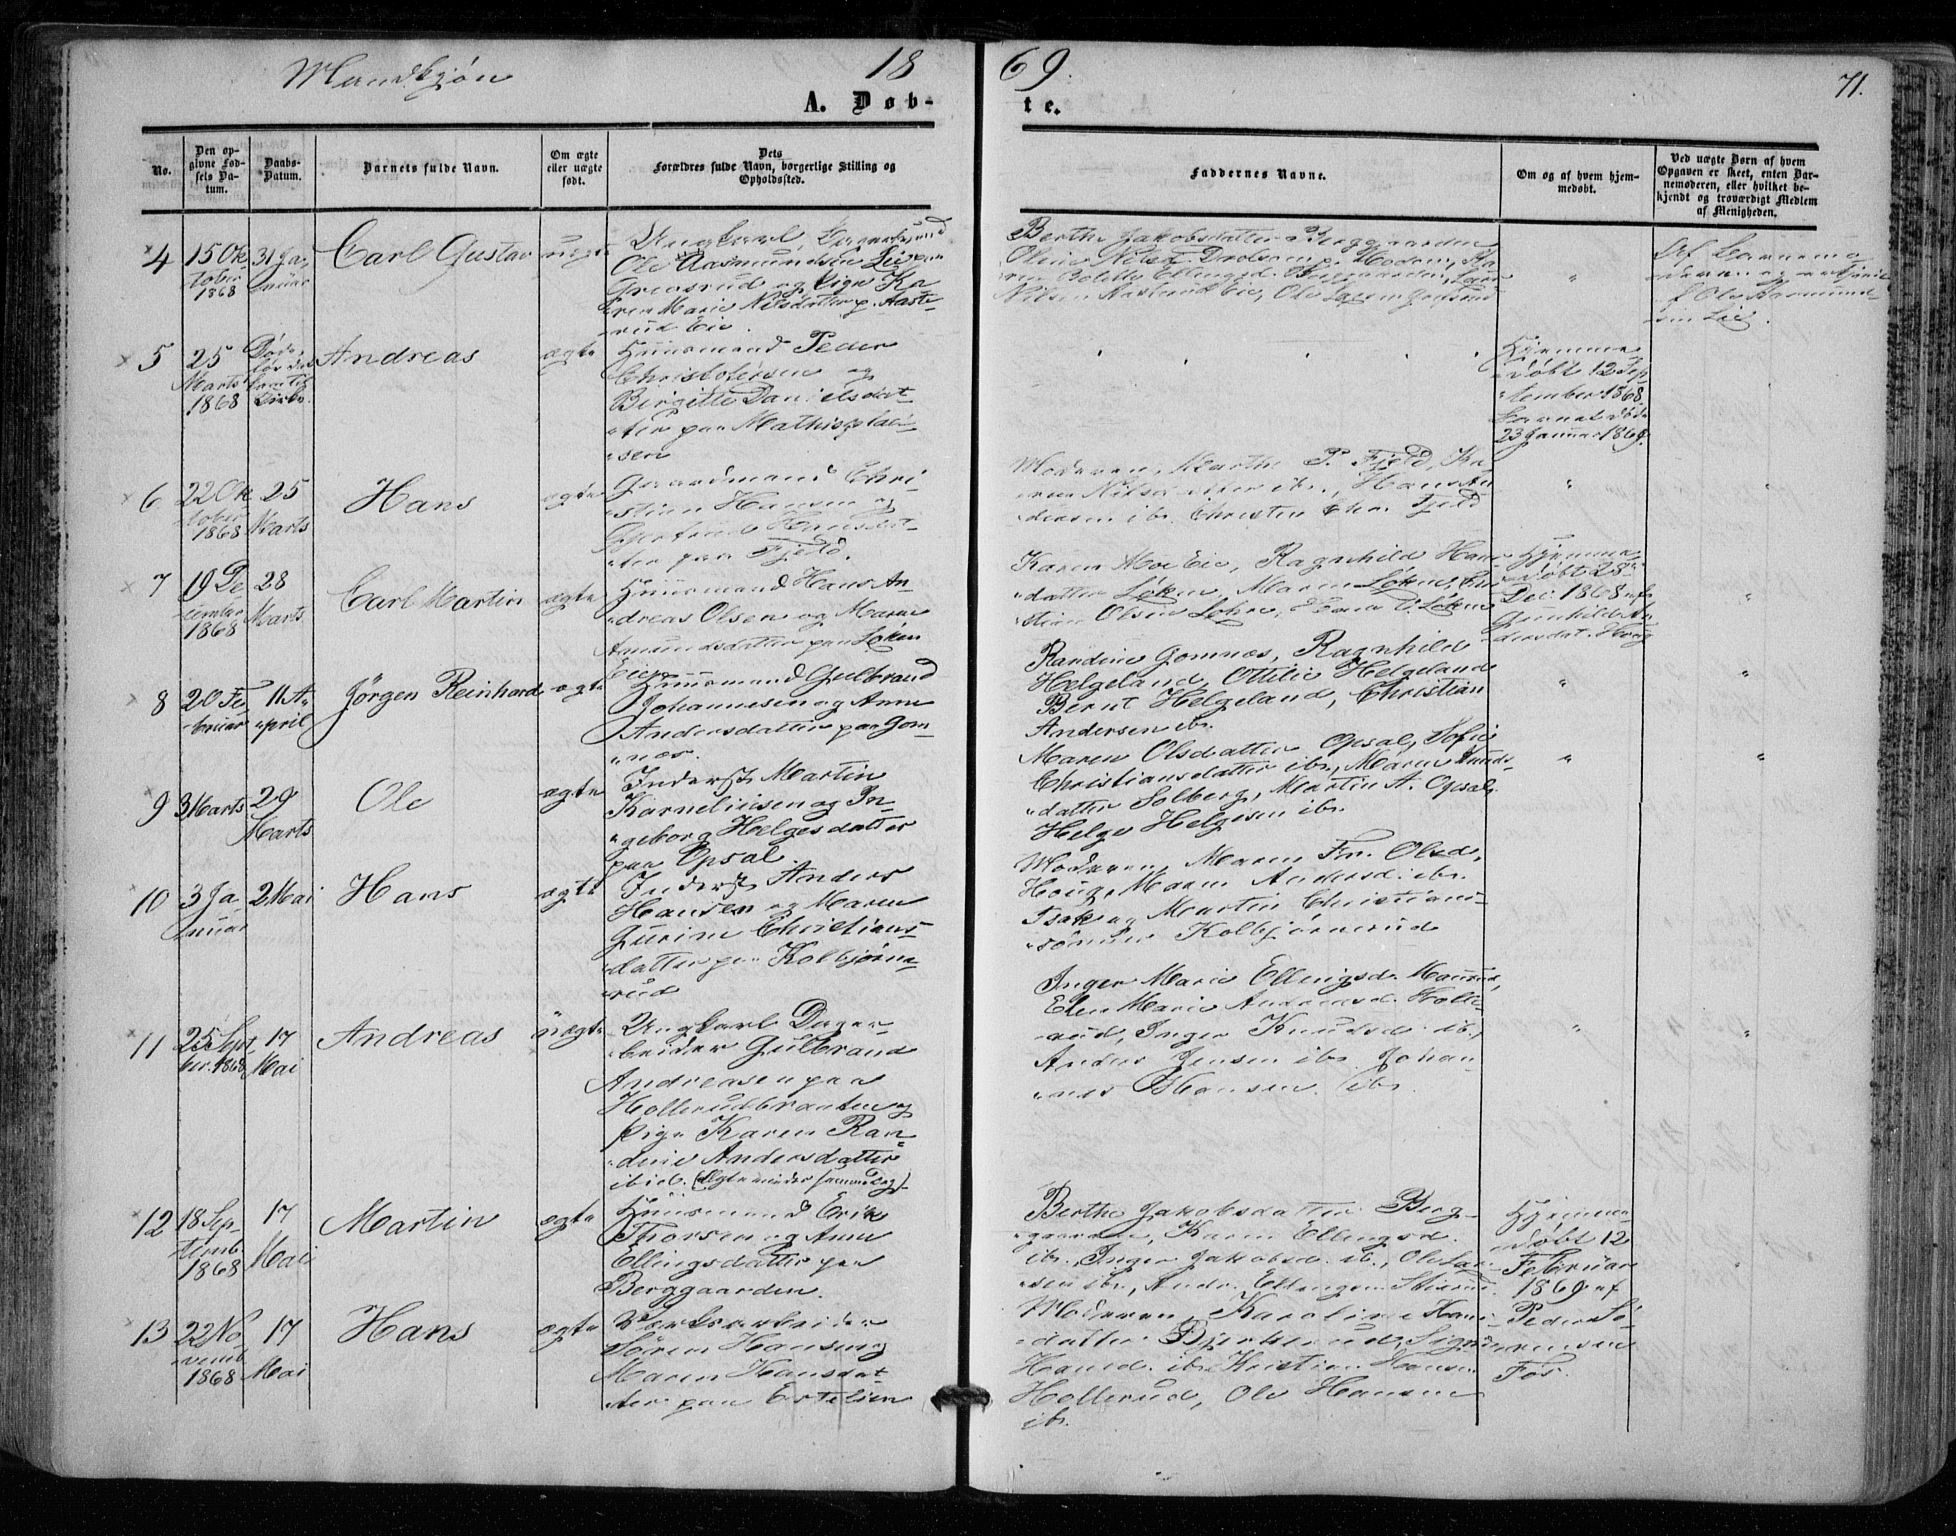 Mandkjøn
18
69.
71.
A. Døb-
te.
No.
Den op-
givne Fød-
sels Da-
tum.
Daabs-
Datum.
Barnets fulde Navn.
Om ægte
eller uægte
født.
Dets
Forældres fulde Navn, borgerlige Stilling og
Opholdssted.
Faddernes Navne.
Om og af hvem hjem-
medøbt.
Ved uægte Børn af hvem
Opgaven er skeet, enten Bar-
nemoderen, eller hvilket be-
kjendt og troværdigt Medlem
af Menigheden.
4
15 Ok
tober
1868
31 Ja,
nuar
Carl Gustav
uægte
Ungkarl,
Ole Rasmundsen Lie paa
og Pige Ka
ren Marie Nilsdatter p. Aaste
rud Eie.
Berthe Jakobsdatter Berggaarden
Nilsen Aasterud Eie, Ole Larsen
"
Af Barnemo
deren og
f Ole Rasmund
sen Lie.
5
25
Marts
1868
Andreas
ægte
Huusmand Peder
Christofersen og
Birgitte Danielsdat
ter paa Mathispladsen
Hjemme
døbt 12 Sep
tember 1868.
Barnet døde
23 Januar 1869.
6
22 Ok
tober
1868
25
Marts
Hans
ægte
Gaardmand Chri
stian Hansen og
Gjertrud Hansdat
ter paa Fjeld.
Moderen, Marthe P. Fjeld, Ka
ren Nilsdatter ib., Hans An
dersen ib. Christen Chr. Fjeld
"
"
7
19 De
cember
1868
28
Marts
Carl Martin
ægte
Huusmand Hans An
dreas Olsen og Maren
Amundsdatter paa Løken
Eie
Karen Moe Eie, Ragnhild Hans
datter Løken, Maren Løken, Chri
stian Olsen Løken, O. Løken
Hjemme
døbt 28
Dec. 1868 af
Gunhild An
dersdat.
"
8
20 Fe
bruar
11 A
pril
Jørgen Reinhard
ægte
Huusmand Gulbrand
Johannesen og Anne
Andersdatter paa Gom
næs.
Randine Gomnæs, Ragnhild
Helgeland, Ottilie Helgeland
Bernt Helgeland, Christian
Andersen ib.
"
"
9
3 Marts
29
Marts
Ole
ægte
Inderst Martin
Karneliusen og In
geborg Helgesdatter
paa Opsal.
Maren Olsdatter Opsal, Sofie
Christiansdatter ib., Maren Knuds
datter Solberg, Martin A. Opsal,
Helge Helgesen ib.
"
"
10
3 Ja
nuar
2 Mai
Hans
ægte
Inderst Anders
Hansen og Maren
Gurine Christians
datter paa Kolbjørns
rud
Moderen, Maren Fr. Olsd.
Houg, Maren Andersd. ib.
Isak og Martin Christian
sønner Kolbjørnsrud
11
25 Sept
br. 1868
17
Mai
Andreas
uægte
Ungkarl Dagar
beider Gulbrand
Andreasen paa
Hollerudbraaten og
Pige Karen Ran
dine Andersdatter
ibid.
Inger Marie Ellingsd.
Elen Marie Andersd. Holle
rud, Inger Knudsd. ib.
Anders Jensen ib. Johan
nes Hansen ib.
"
"
12
18 Sep
temb.
1868
17
Mai
Martin
ægte
Huusmand Erik
Thorsen og Anne
Ellingsdatter paa
Berggaarden.
Berthe Jakobsdatter Berg
gaarden, Karen Ellingsd.
ib., Inger Jakobsd. ib., Ole Lar
sen ib., Andr. Ellingsen
Hjemme
døbt 12
Februar
1869 af
Peder Sø
rensen
Fos.
13
22 No
vemb.
1868
17
Mai
Hans
ægte
Værksarbeider
Søren Hansen og
Maren Hansdat
ter paa Ertelien
Moderen, Karoline Hans
datter Bjerkerud, Signe
Hansd. ib. Kristian Hansen
Hollerud, Ole Hansen
ib.